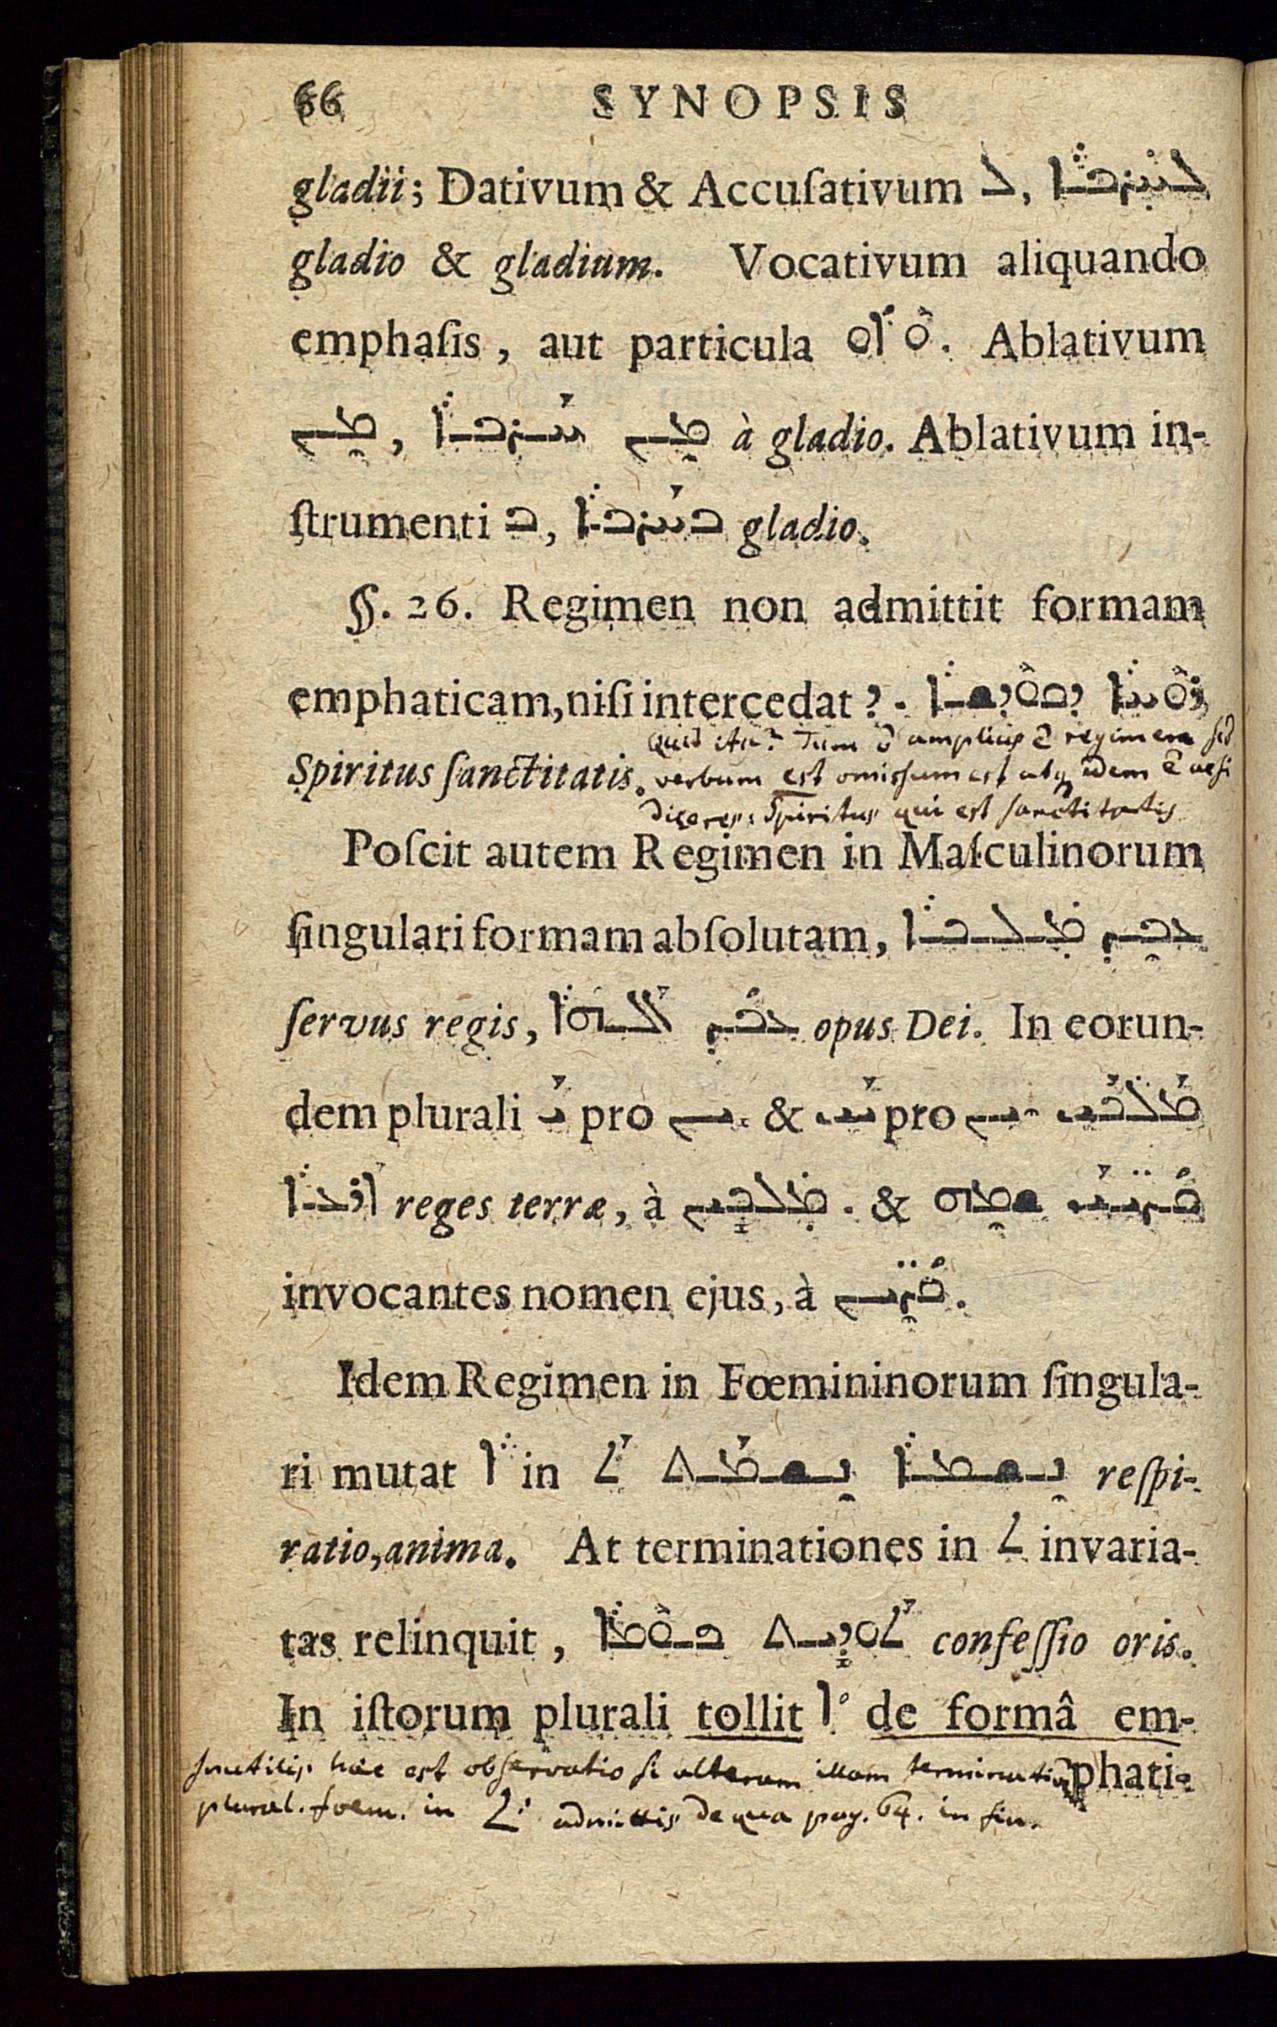 66 SYNOPSIS
gladii; Dativum & Accuſativum ܠ, ܠܚܪܒܐ
gladio & gladium. Vocativum aliquando
emphaſis, aut particula ܐܘ ܘ. Ablativum
ܡܢ, ܡܢ ܚܪܒܐ à gladio. Ablativum in-
ſtrumenti ܒ, ܒܚܪܒܐ gladio.
§. 26. Regimen non admittit formam
emphaticam, niſi intercedat ܕ. ܪܘܚܐ ܕܩܘܕܫܐ
Quid ita? Tum ō amplius ē regimen sed
Spiritus ſanctitatis. verbum est omissum est atq idem ē ac si
diceres: Spiritus qui est sanctitatis
Poſcit autem Regimen in Maſculinorum
ſingulari formam abſolutam, ܥܒܕ ܡܠܟܐ
ſervus regis, ܥܒܕ ܐܠܗܐ opus Dei. In eorun-
dem plurali ܝ pro ܝܢ & ܝ pro ܝܢ ܡܠܟܝ
ܐܪܥܐ reges terræ, à ܡܠܟܝܢ. & ܩܪܝܝ ܫܡܗ
invocantes nomen ejus, à ܩܪܝܢ.
Idem Regimen in Fœmininorum ſingula-
ri mutat ܐ in ܬ ܢܫܡܬ ܢܫܡܐ reſpi-
ratio, anima. At terminationes in ܬ invaria-
tas relinquit, ܬܘܕܝܬ ܦܘܡܐ confeſſio oris.
In iſtorum plurali tollit ܐ de formâ em-
phati-
inutilis haec est observatio si alteram illam terminationē
plural. foem. in ܬ admittis de qua pag. 64. in fin.